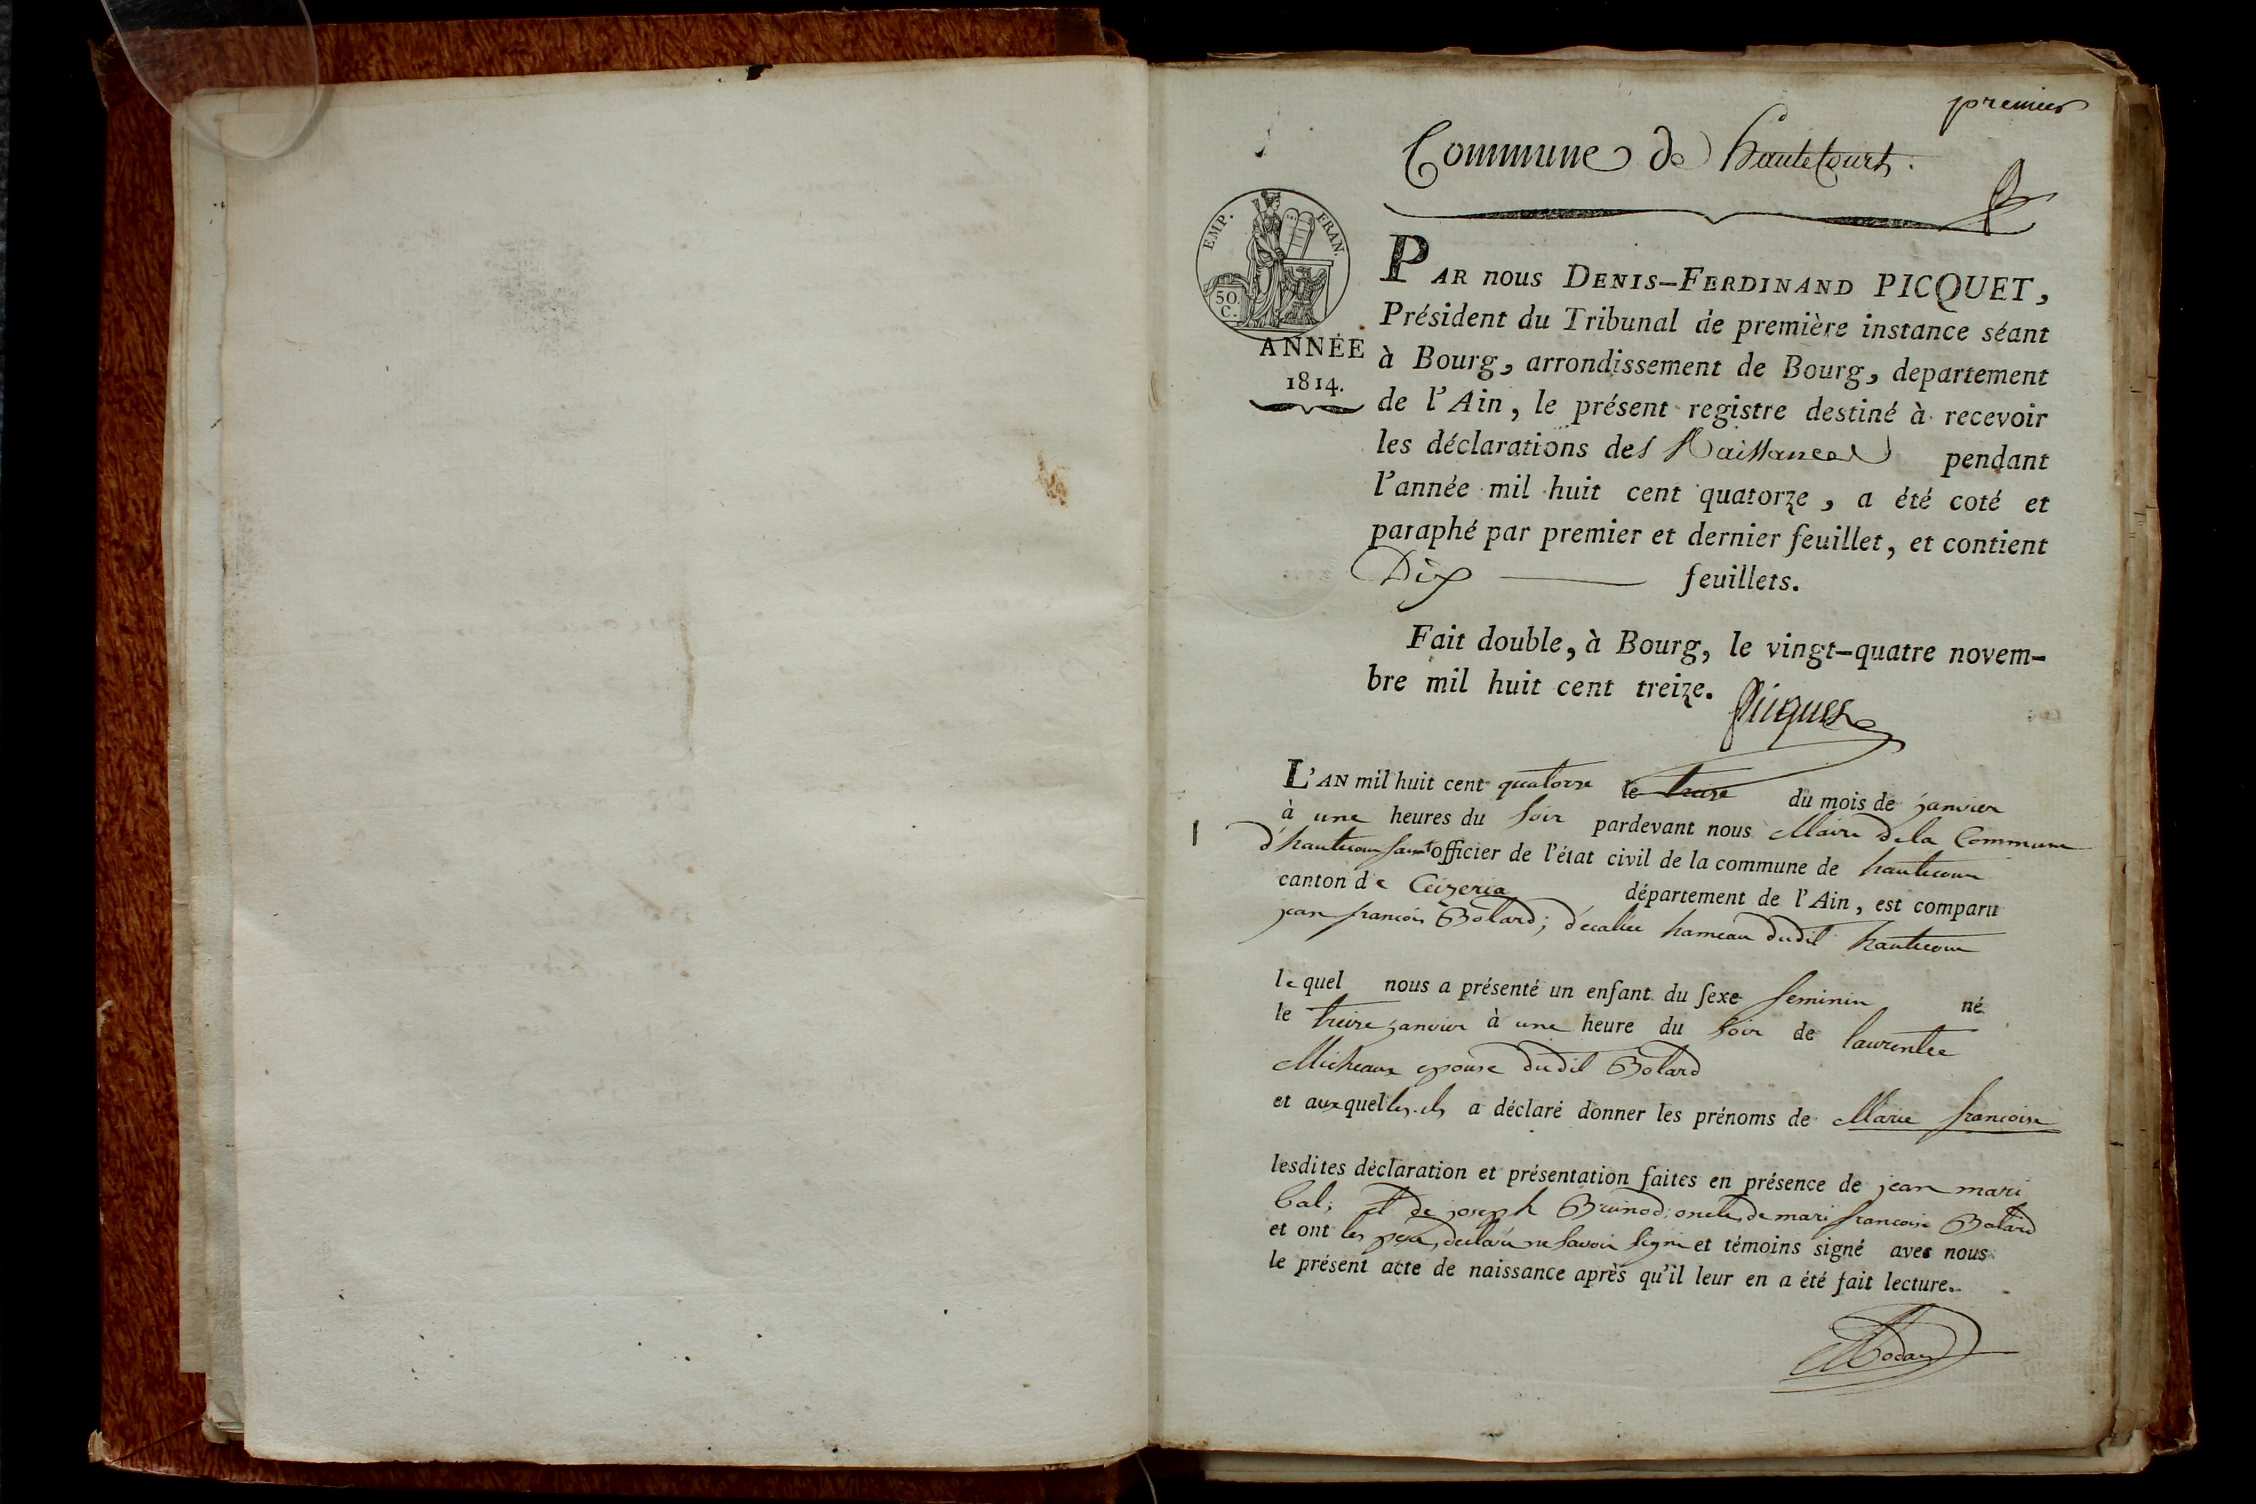 premier
Commune de hautecourt.
EMP. FRAN.
50.
C.
ANNÉE
1814.
PAR nous DENIS-FERDINAND PICQUET,
Président du Tribunal de première instance séant
à Bourg, arrondissement de Bourg, departement
de l'Ain, le présent registre destiné à recevoir
les déclarations des Naissances pendant
l'année mil huit cent quatorze, a été coté et
paraphé par premier et dernier feuillet, et contient
Dix feuillets.
Fait double, à Bourg, le vingt-quatre novem-
bre mil huit cent treize. Picquet
L'AN mil huit cent quatorze le treize du mois de janvier
à une heures du soir pardevant nous Maire de la Commune
1
d'hautecour officier de l'état civil de la commune de hautecour
canton de Ceizeria département de l'Ain, est comparu
jean françois Bolard; hameau dudit hautecour
lequel nous a présenté un enfant du sexe feminin né
le treize janvier à une heure du soir de laurentee
Micheaux epouse dudit Bolard
et auxquelles ils a déclaré donner les prénoms de Marie francoise
lesdites déclaration et présentation faites en présence de jean mari
Cal; et de joseph Brunod; oncles de mari francoise Bolard
et ont les pere declaré ne savoir signe et témoins signé avec nous
le présent acte de naissance après qu'il leur en a été fait lecture.